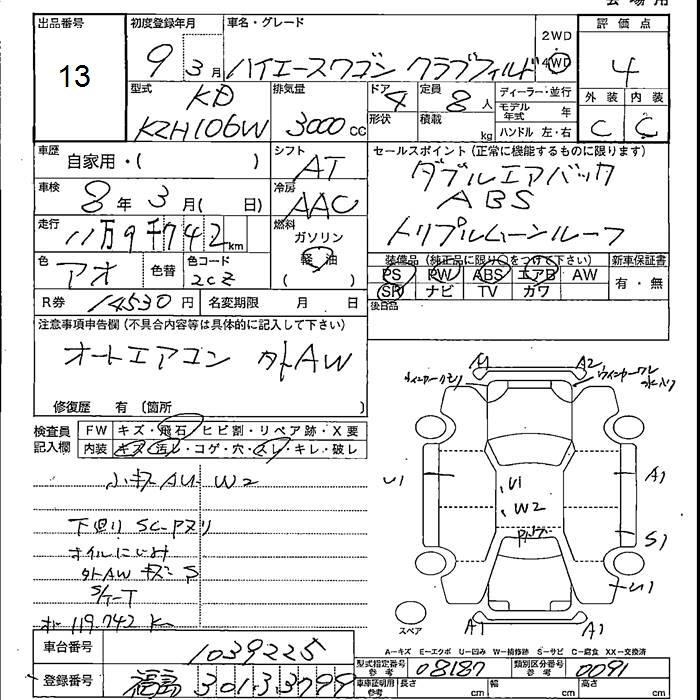 出品番号
13
初度登録年月
9 3月
車名・グレード
ハイエースワゴン クラブフィルド
2WD
4WD
評価点
4
外装 内装
C C
型式
KD
KZH106W
排気量
3000cc
ドア
4
形状
定員
8人
積載
kg
ディーラー・並行
モデル年式 年
ハンドル 左・右
車歴
自家用・( )
シフト
AT
セールスポイント(正常に機能するものに限ります)
ダブルエアバック
ABS
トリプルムーンルーフ
車検
8年 3月( 日)
冷房
AAC
走行
11万9千742km
燃料
ガソリン
軽油
( )
色
アオ
色替
色コード
2CZ
装備品(純正品に限り○をつけて下さい)
PS PW ABS エアB AW
SR ナビ TV カワ
新車保証書
有・無
R券
14530円
名変期限 月 日
後日品
注意事項申告欄(不具合内容等は具体的に記入して下さい)
オートエアコン 外AW
修復歴 有〔箇所 〕
検査員記入欄
FW キズ・飛石・ヒビ割・リペア跡・X要
内装 キズ・汚レ・コゲ・穴・スレ・キレ・破レ
小キズAU W2
下回り SC-Pヌリ
オイルにじみ
外AW キズ S
S/T-T
119.742K
A1 A2
U1 U1 A1
W2
S1
U1
A1 A1
スペア
A−キズ E−エクボ U−凹み W−補修跡 S−サビ C−腐食 XX−交換済
車台番号
1039225
登録番号
福島 301 3 3799
型式指定番号
参考
08187
類別区分番号
参考
0091
車庫証明用
参考
長さ cm 幅 cm 高さ cm